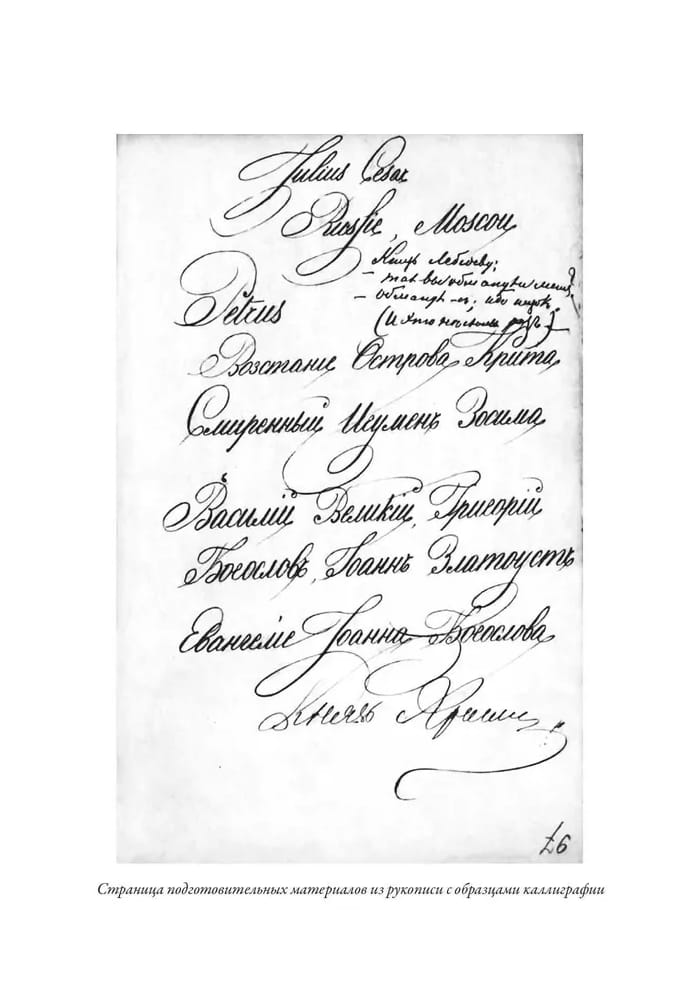 Julius Cesar
Russie, Moscou
Князь Лебедеву:
– такъ вы обманули меня?
Petrus
Возстаніе Острова Крита
Смиренный Игуменъ Зосима
Василій Великій, Григорій
Богословъ, Іоаннъ Златоустъ
Евангеліе Іоанна Богослова
Князь
Страница подготовительных материалов из рукописи с образцами каллиграфии